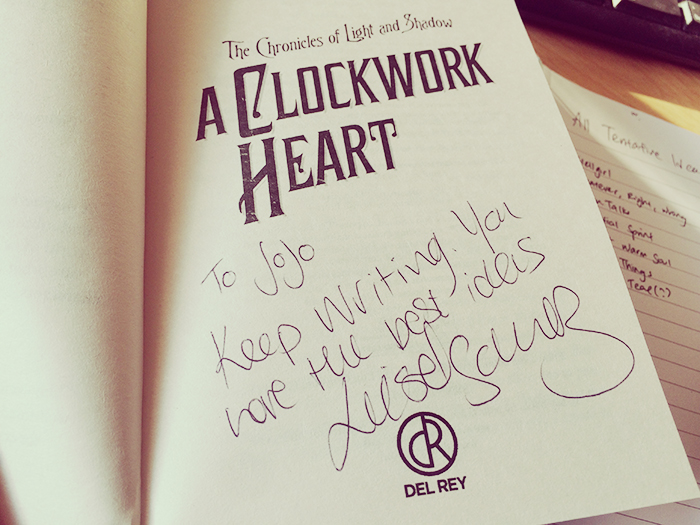 The Chronicles of Light and Shadow
A CLOCKWORK
HEART
To JoJo
Keep Writing. You
have the best ideas
Liesel Schwarz
DR
DEL REY
All Tentative
Right, Wrong
Talks
Spirit
Warm Soul
Things
Tear(?)